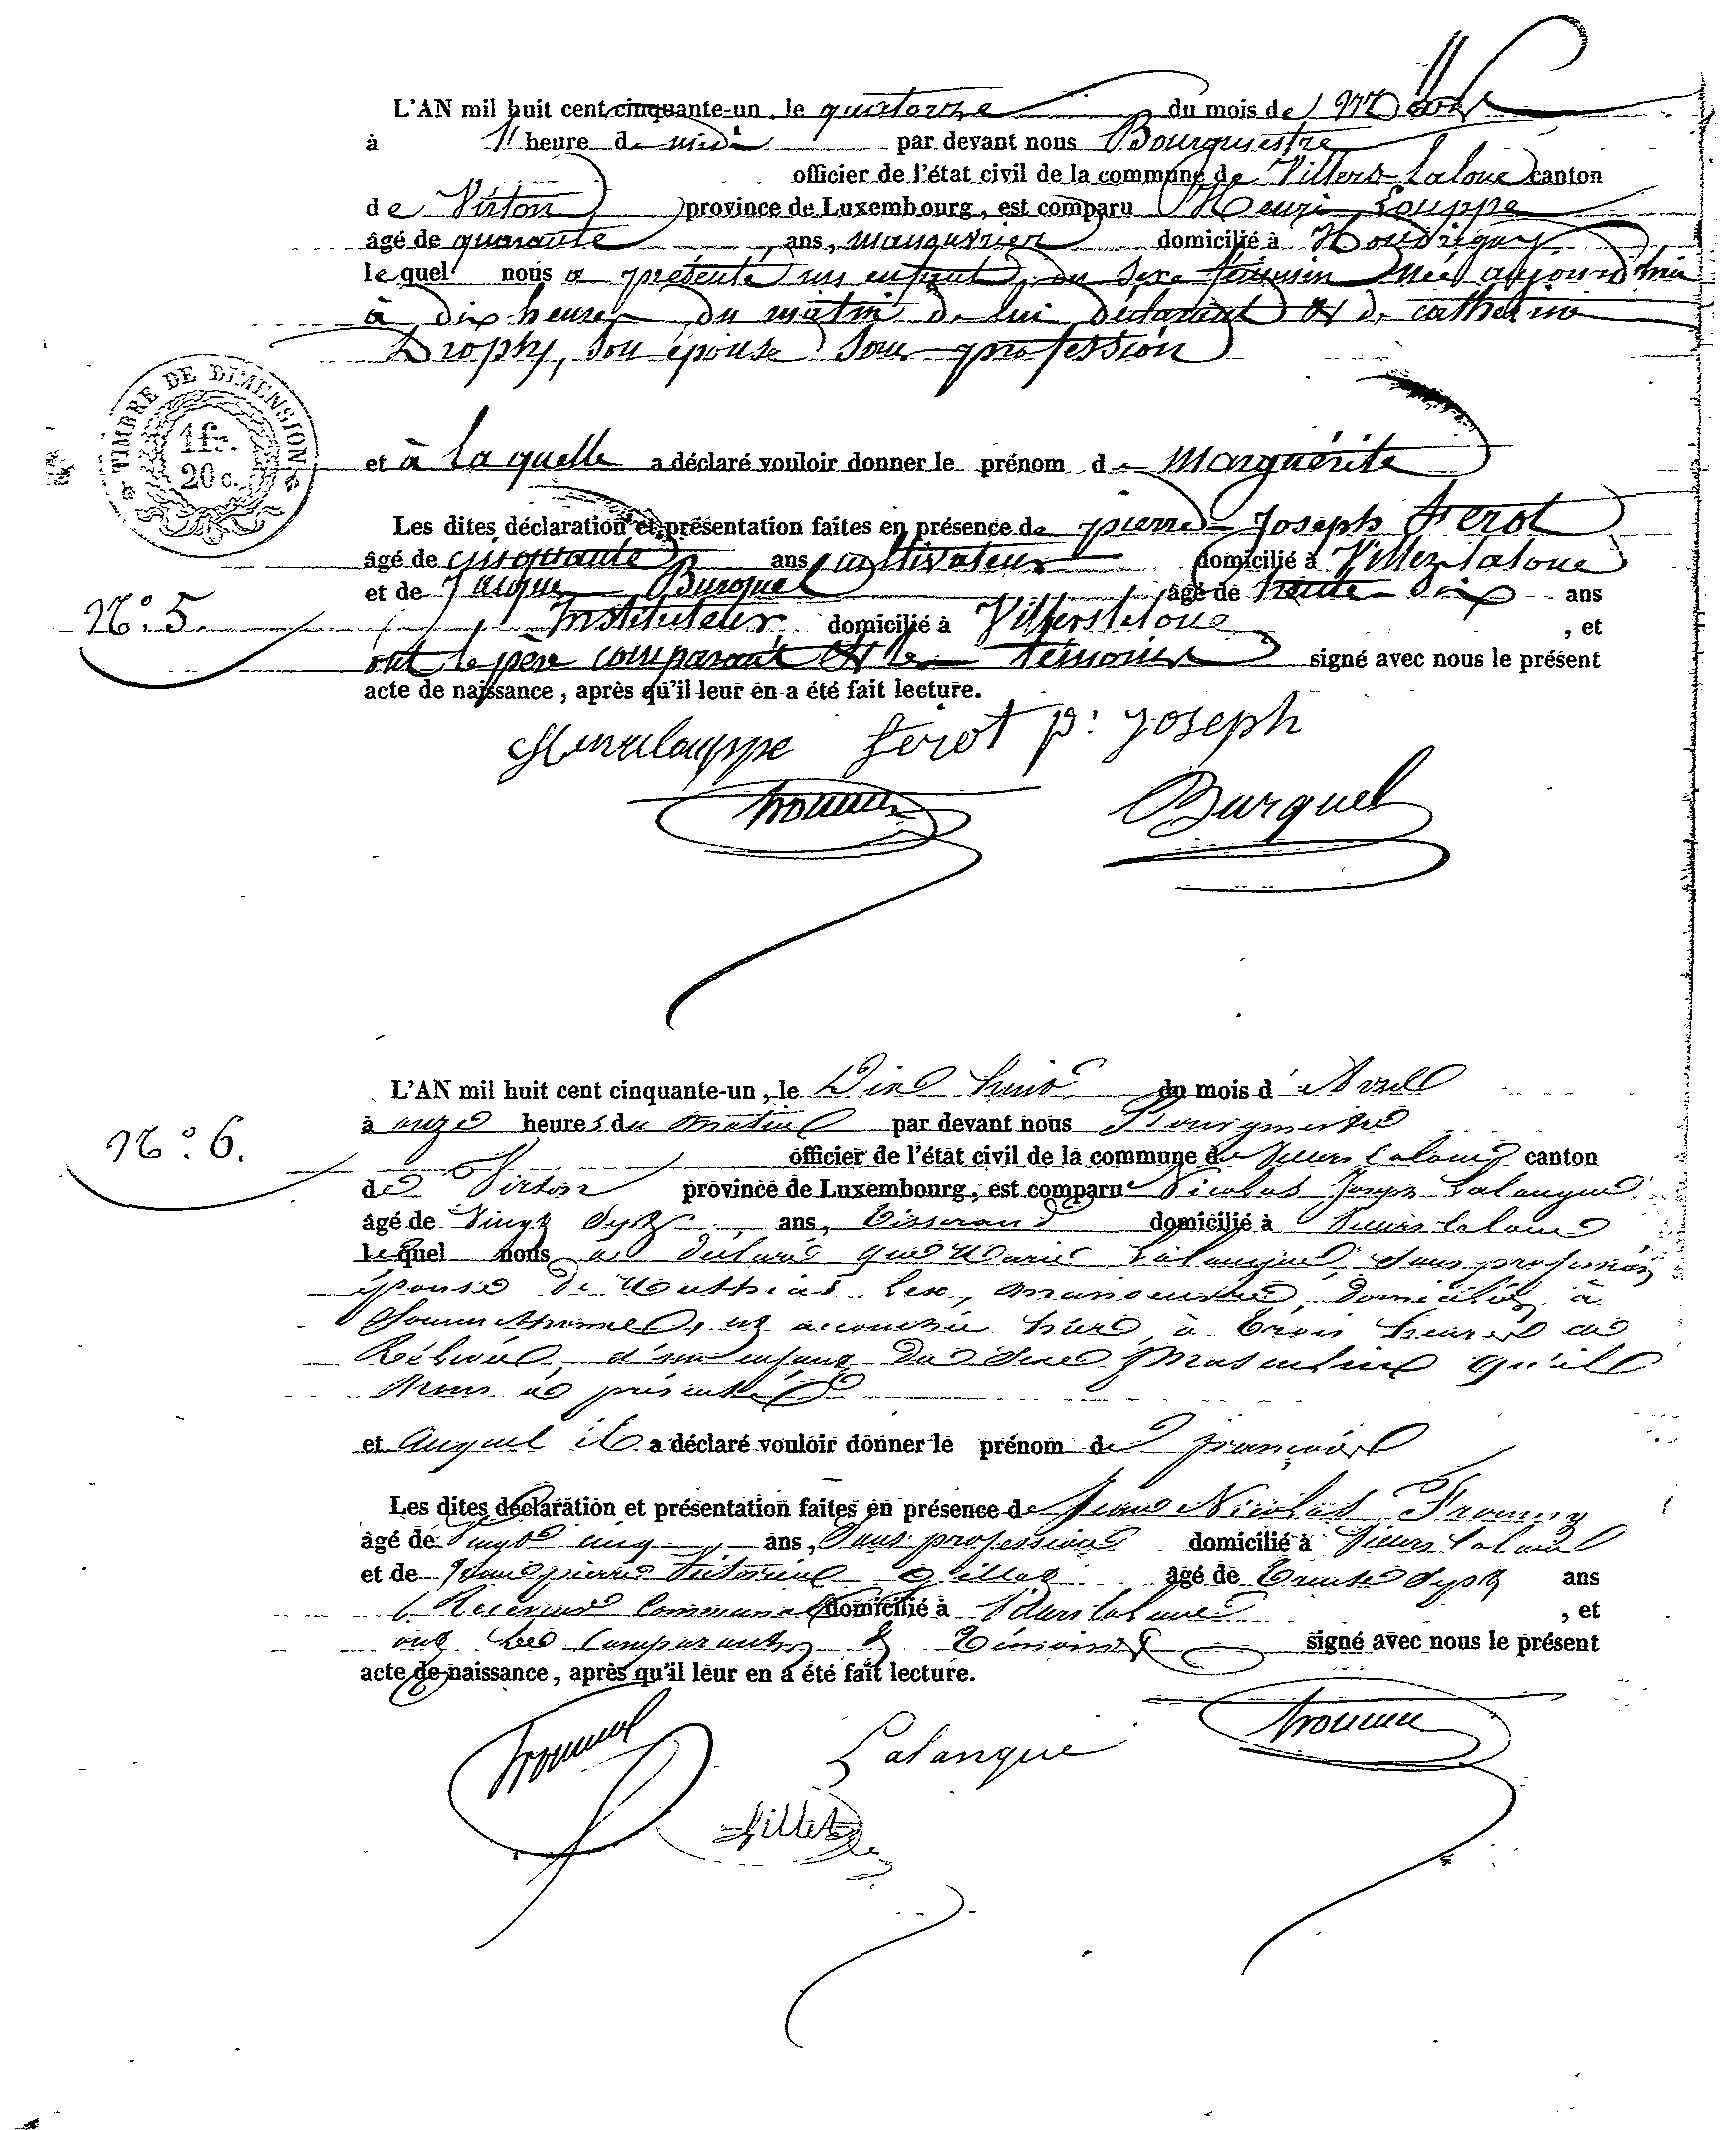 L'AN mil huit cent cinquante-un, le quatorze du mois de Mars
à 1 heure de midi par devant nous Bourgmestre
officier de l'état civil de la commune de Villers Laloue canton
de Virton province de Luxembourg, est comparu Henri Louppe
âgé de quarante ans, manouvrier domicilié à Houdrigny
lequel nous a présenté un enfant du sexe féminin née aujourd'hui
à dix heures du matin de lui déclarant & de catherine
Drophy, son épouse sans profession
TIMBRE DE DIMENSION
1 fr.
20 c.
et à laquelle a déclaré vouloir donner le prénom de Marguérite
Les dites déclaration et présentation faites en présence de pierre Joseph ferot
âgé de cinquante ans cultivateur domicilié à Villers laloue
et de Jacque Burquel âgé de trente six ans
N° 5.
Instituteur domicilié à Villers laloue, et
ont le père comparant & les témoins signé avec nous le présent
acte de naissance, après qu'il leur en a été fait lecture.
ferot p: joseph
Burquel
L'AN mil huit cent cinquante-un, le Dix huit du mois d'Avril
à onze heures du matin par devant nous Bourgmestre
N° 6.
officier de l'état civil de la commune de Villers Laloue canton
de Virton province de Luxembourg, est comparu Nicolas Joseph Lalangue
âgé de Vingt Sept ans, Tisserand domicilié à Villers laloue
lequel nous a déclaré que Marie Lalangue, sans profession
épouse de Mathias Lex, manoeuvre, domiciliés à
est accouchée hier à trois heures de
relevée, d'un enfant du sexe Masculin qu'il
nous a présenté
et auquel il a déclaré vouloir donner le prénom de françois
Les dites déclaration et présentation faites en présence de Jean Nicolas
âgé de Vingt cinq ans, Sans profession domicilié à Villers laloue
et de Jean pierre Victorien Gillet âgé de Trente Sept ans
Receveur Communal domicilié à Villers laloue, et
ont les Comparants & Témoins signé avec nous le présent
acte de naissance, après qu'il leur en a été fait lecture.
Lalangue
Gillet